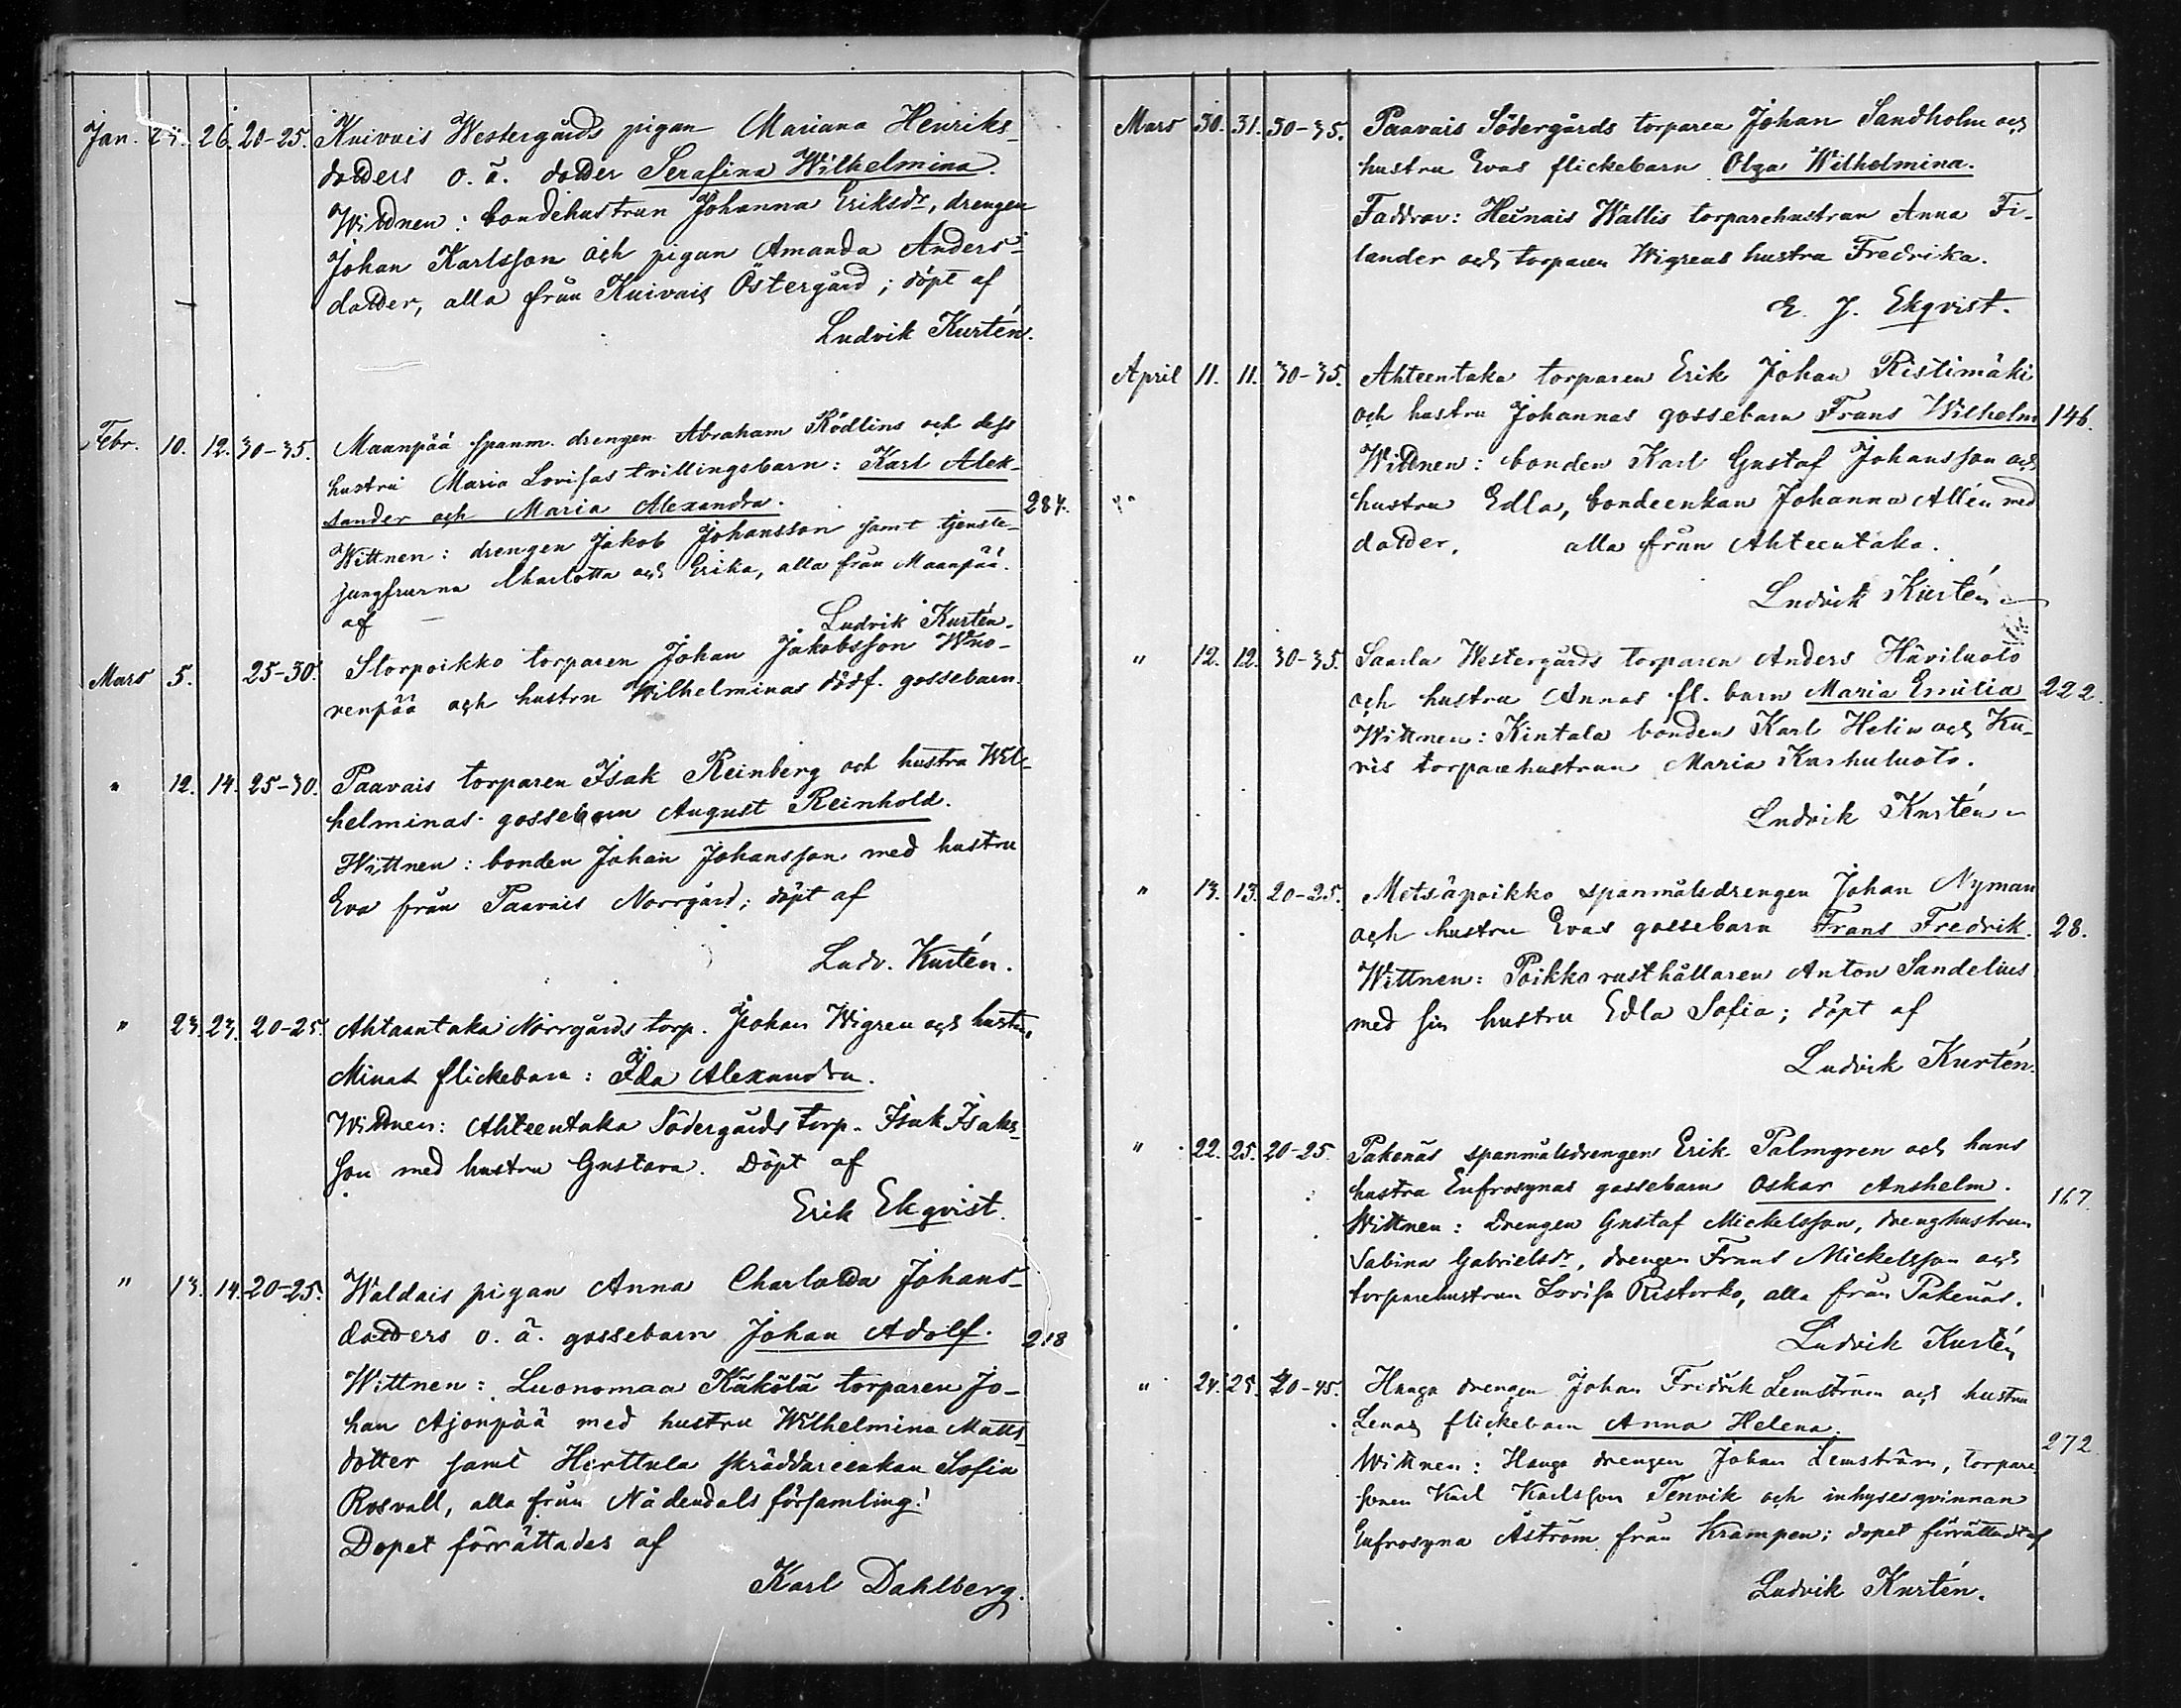 Jan. 26. 20-25. Kuivais Westergårds pigan Mariana Henriks-
dotters o. ä. dotter Serafina Wilhelmina.
Wittnen: bondehustrun Johanna Eriksdr, drengen
Johan Karlsson och pigan Amanda Anders-
dotter, alla från Kuivais Östergård; döpt af
Ludvik Kurtén.
Febr. 10. 12. 30-35. Maanpää spanm. drengen Abraham Rödlins och dess
hustru Maria Lovisas tvillingsbarn: Karl Alek-
sander och Maria Alexandra. 284.
Wittnen: drengen Jakob Johansson samt tjenste-
jungfrurna Charlotta och Erika, alla från Maanpää.
af Ludvik Kurtén.
Mars 5. 25-30. Storpoikko torparen Johan Jakobsson Wuo-
renpää och hustru Wilhelminas dödf. gossebarn.
" 12. 14. 25-30. Paavais torparen Isak Reinberg och hustru Wil-
helminas gossebarn August Reinhold.
Wittnen: bonden Johan Johansson med hustru
Eva från Paavais Norrgård; döpt af
Ludv. Kurtén.
" 23. 23. 20-25. Ahtaantaka Norrgårds torp. Johan Wigren och hustru
Minas flickebarn: Ida Alexandra.
Wittnen: Ahteentaka Södergårds torp. Isak Isaks-
son med hustru Gustava. Döpt af
Erik Ekqvist.
" 13. 14. 20-25. Waldais pigan Anna Charlotta Johans-
dotters o. ä. gossebarn Johan Adolf. 218
Wittnen: Luonomaa Käkölä torparen Jo-
han Ajonpää med hustru Wilhelmina Matts-
dotter samt Hirttula skräddareenkan Sofia
Rosvall, alla från Nådendals församling!
Dopet förrättades af
Karl Dahlberg.
Mars 30. 31. 30-35. Paavais Södergårds torparen Johan Sandholm och
hustru Evas flickebarn Olga Wilhelmina.
Faddrar: Heinais Wallis torparehustrun Anna Fi-
lander och torparen Wigrens hustru Fredrika.
E. J. Ekqvist.
April 11. 11. 30-35. Ahteentaka torparen Erik Johan Ristimäki
och hustru Johannas gossebarn Frans Wilhelm 146.
Wittnen: bonden Karl Gustaf Johansson och
hustru Edla, bondeenkan Johanna Allén med
dotter, alla från Ahteentaka.
Ludvik Kurtén
" 12. 12. 30-35. Saarla Westergårds torparen Anders Häviluoto
och hustru Annas fl. barn Maria Emilia 222.
Wittnen: Kintala bonden Karl Helin och Ku-
ris torparehustrun Maria Karhuluoto.
Ludvik Kurtén
" 13. 13. 20-25. Metsäpoikko spanmålsdrengen Johan Nyman
och hustru Evas gossebarn Frans Fredrik. 28.
Wittnen: Poikko rusthållaren Anton Sandelius
med sin hustru Edla Sofia; döpt af
Ludvik Kurtén.
" 22. 25. 20-25. Pakenäs spanmålsdrengen Erik Palmgren och hans
hustru Eufrosynas gossebarn Oskar Anshelm. 167.
Wittnen: Drengen Gustaf Mickelsson, drenghustrun
Sabina Gabrielsdr, drengen Frans Mickelsson och
torparehustrun Lovisa Ristorko, alla från Pakenäs.
Ludvik Kurtén
" 24. 25. 40-45. Haaga drengen Johan Fridrik Lemström och hustru
Lenas flickebarn Anna Helena. 272
Wittnen: Haaga drengen Johan Lemström, torpare-
sonen Karl Karlsson Tenvik och inhysesqvinnan
Eufrosyna Åström från Krampen; dopet förrättadt af
Ludvik Kurtén.